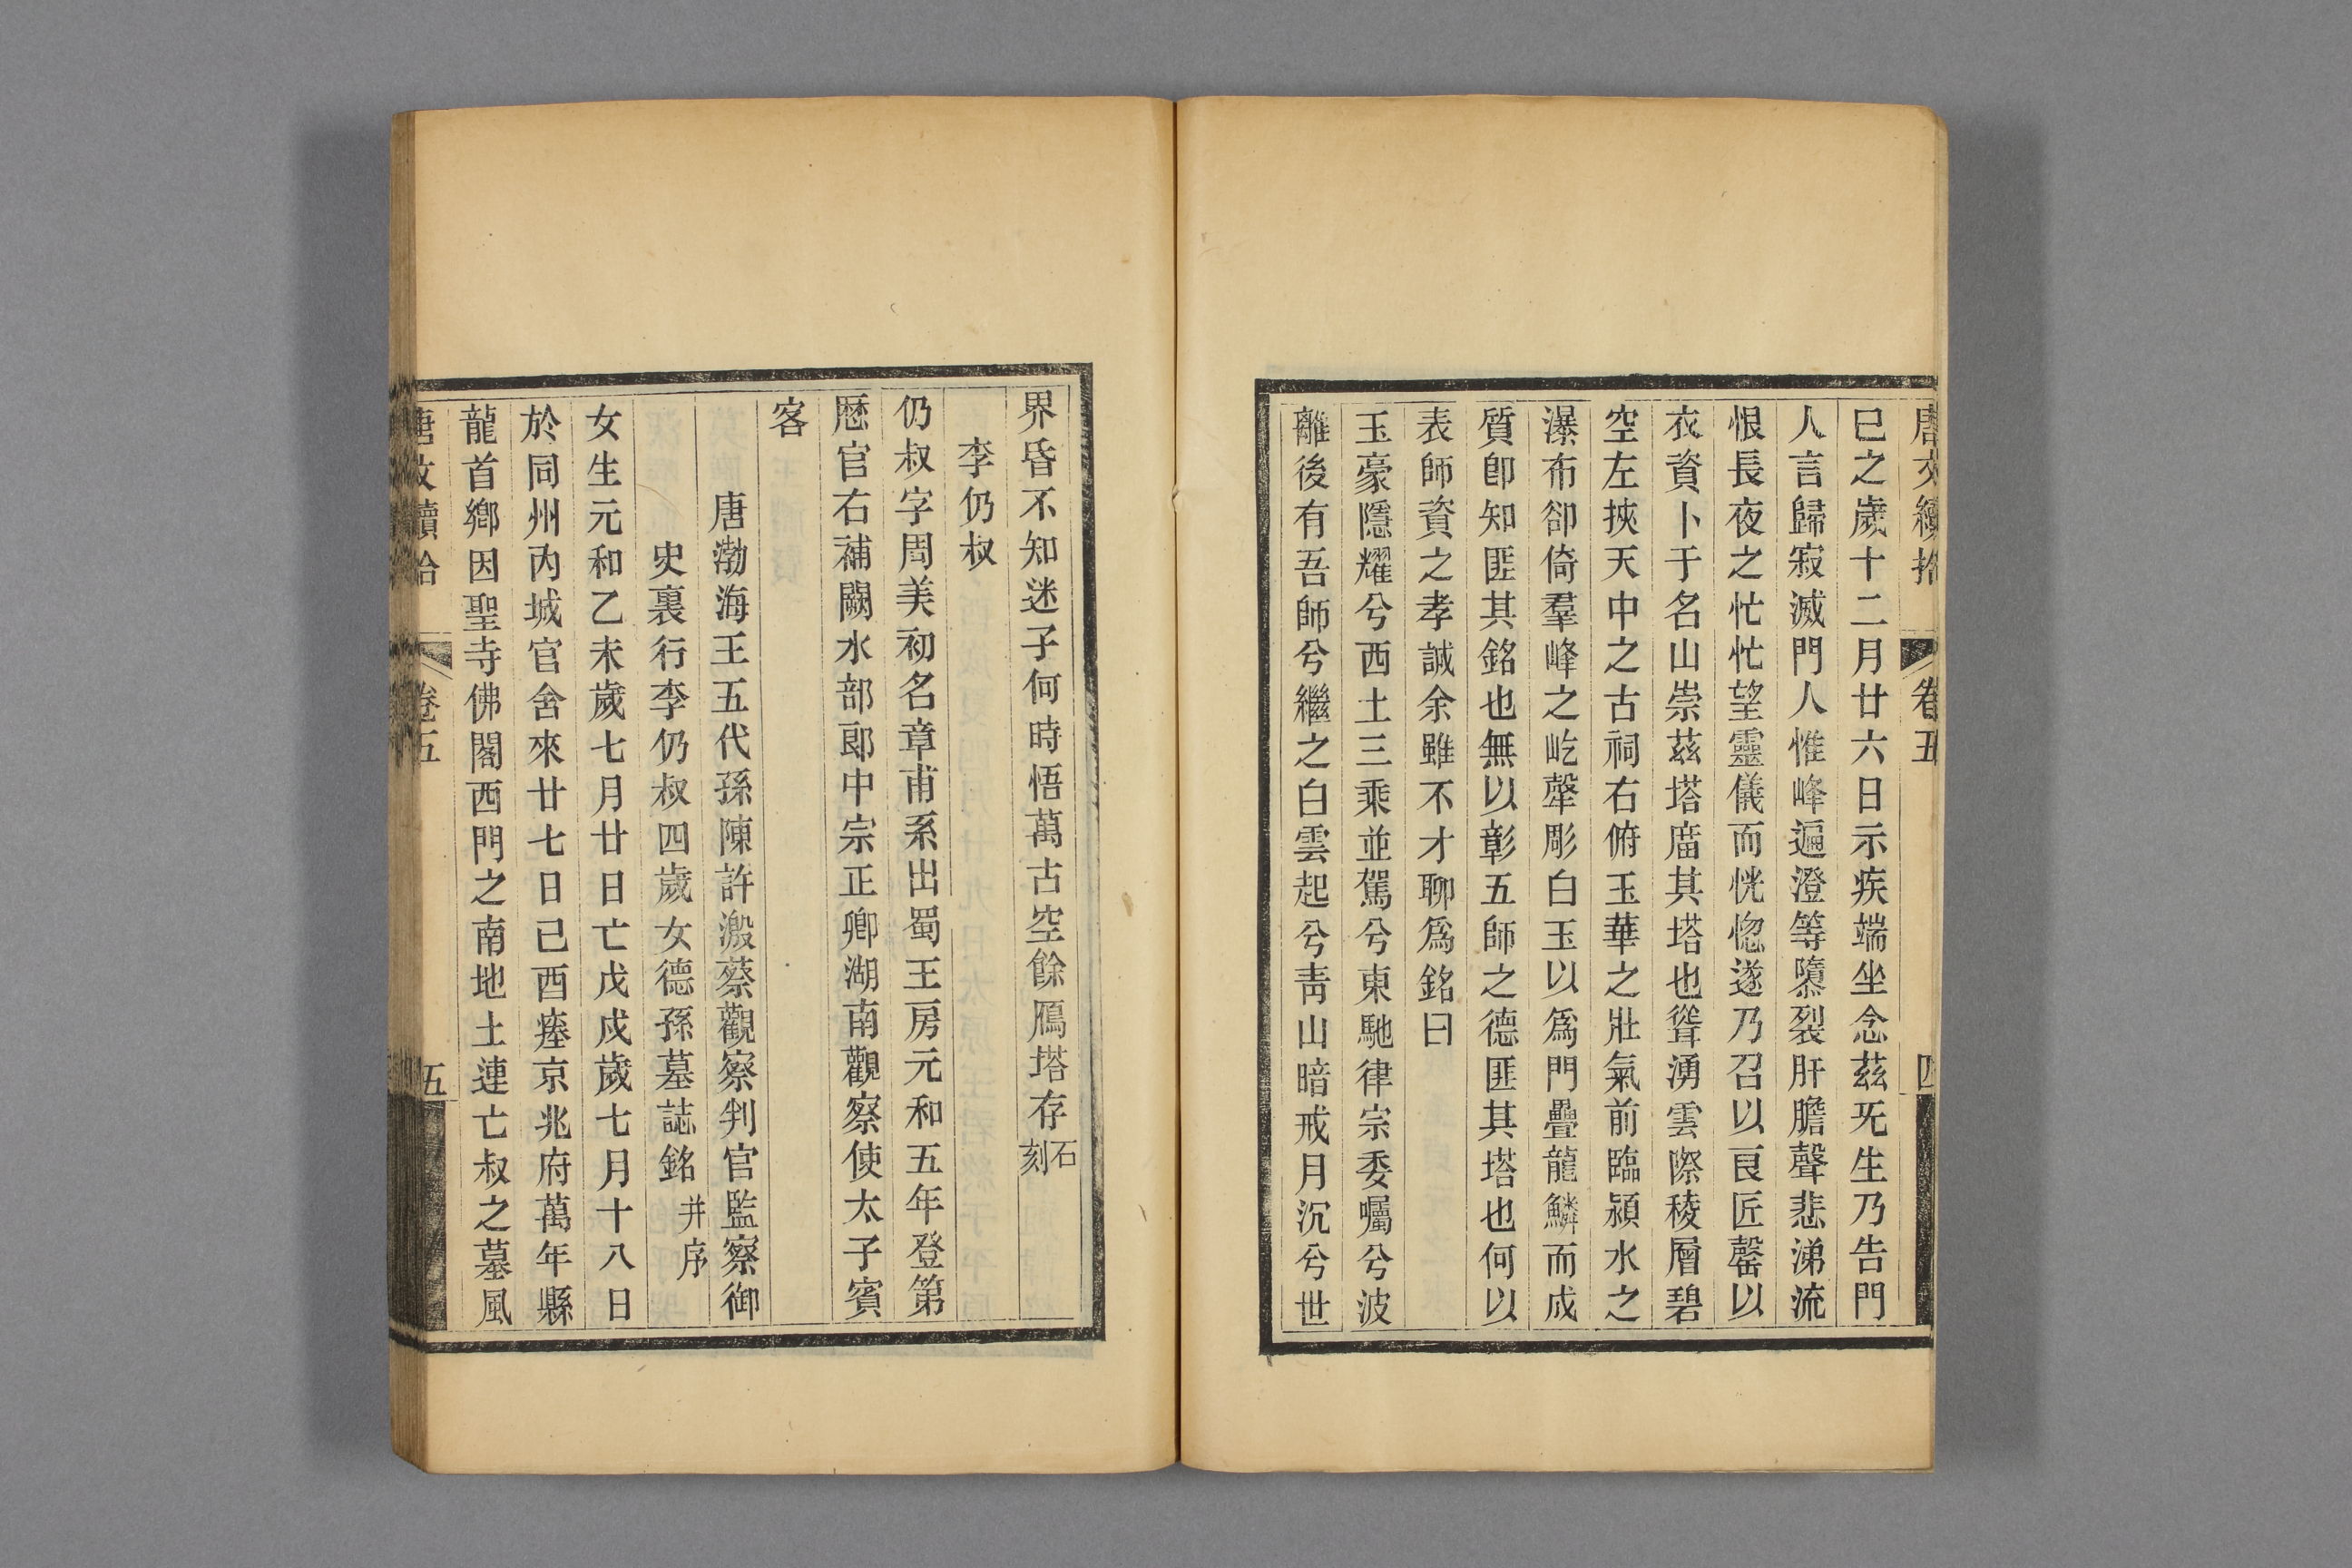 唐文續拾 卷五 四
巳之歲十二月廿六日示疾端坐念茲旡生乃告門
人言歸寂滅門人惟峰遍澄等隳裂肝膽聲悲涕流
恨長夜之忙忙望靈儀而恍惚遂乃召以良匠罄以
衣資卜于名山崇茲塔庿其塔也聳湧雲際稜層碧
空左挾天中之古祠右俯玉華之壯氣前臨潁水之
瀑布卻倚羣峰之屹犖彫白玉以爲門疊龍鱗而成
質卽知匪其銘也無以彰五師之德匪其塔也何以
表師資之孝誠余雖不才聊爲銘曰
玉豪隱耀兮西土三乘並駕兮東馳律宗委囑兮波
離後有吾師兮繼之白雲起兮靑山暗戒月沉兮世
界昏不知迷子何時悟萬古空餘鴈塔存石刻
李仍叔
仍叔字周美初名章甫系出蜀王房元和五年登第
歷官右補闕水部郎中宗正卿湖南觀察使太子賓
客
唐渤海王五代孫陳許潊蔡觀察判官監察御
史裏行李仍叔四歲女德孫墓誌銘并序
女生元和乙未歲七月廿日亡戊戌歲七月十八日
於同州內城官舍來廿七日己酉瘞京兆府萬年縣
龍首鄉因聖寺佛閣西門之南地土連亡叔之墓風
唐文續拾 卷五 五